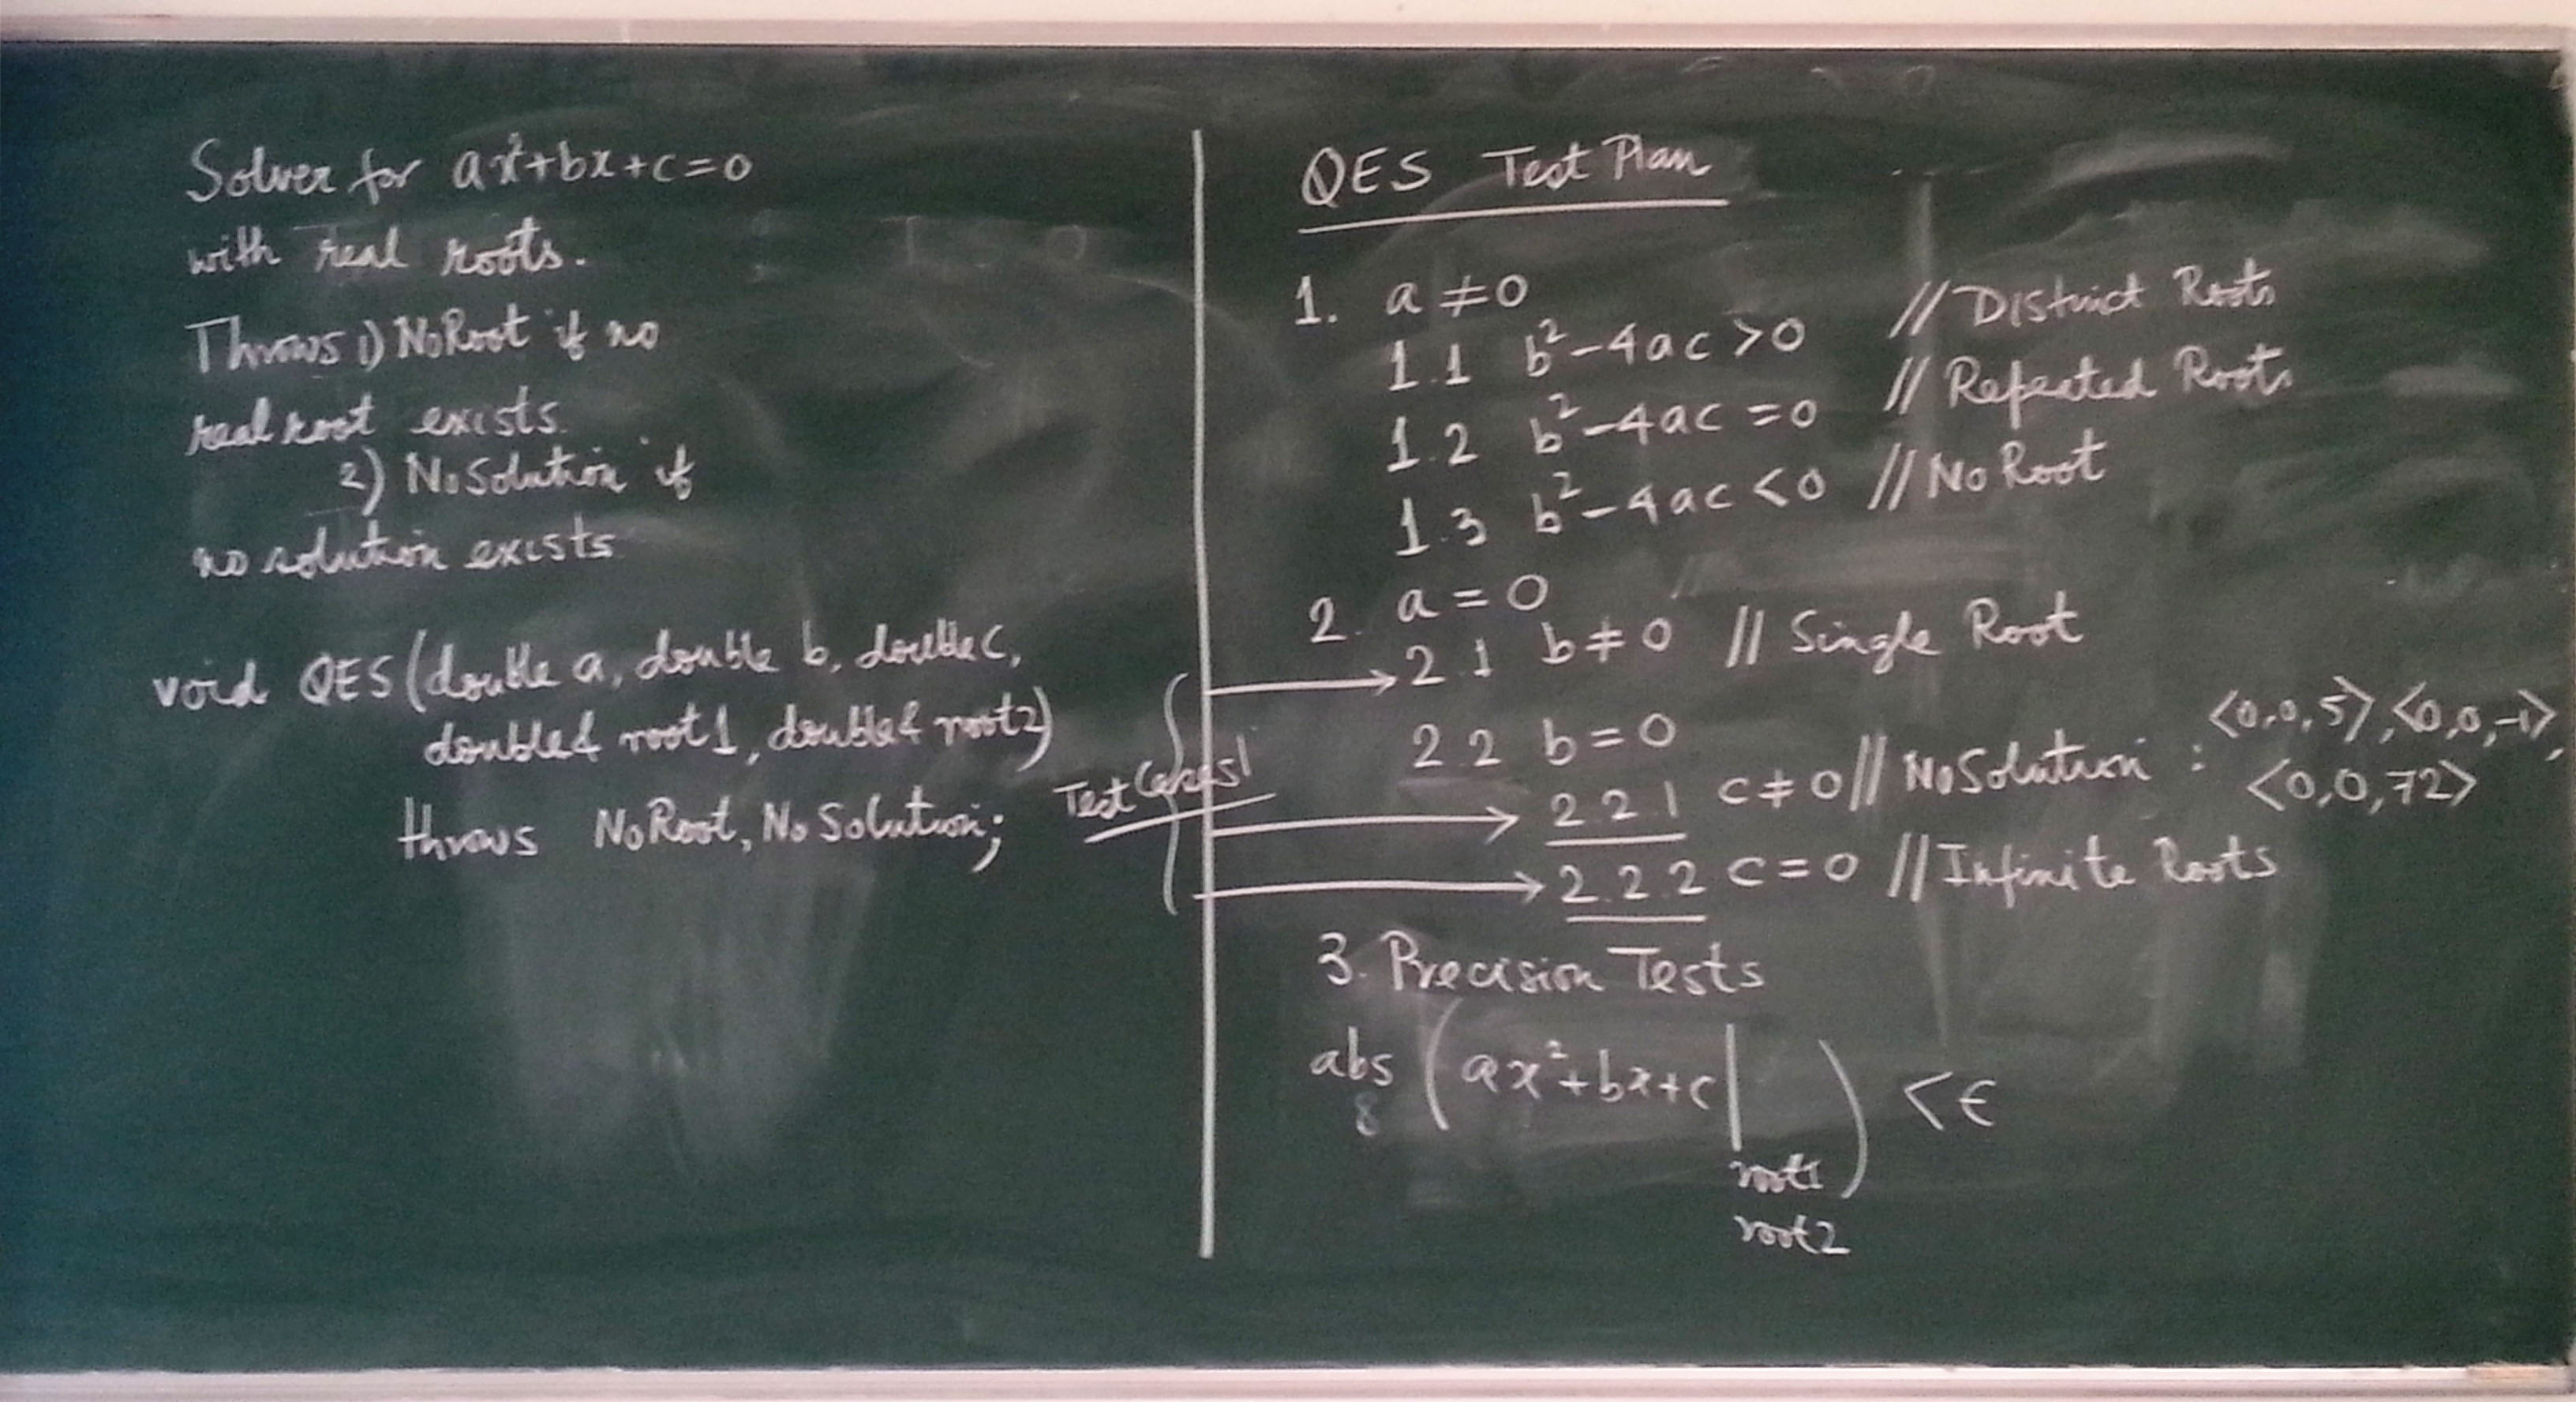 Solver for ax²+bx+c=0
with real roots.
Throws 1) NoRoot if no
real root exists.
2) NoSolution if
no solution exists
void QES(double a, double b, double c,
double& root1, double& root2)
throws NoRoot, NoSolution;
Test Cases
QES Test Plan
1. a≠0
1.1 b²-4ac>0 // Distinct Roots
1.2 b²-4ac=0 // Repeated Roots
1.3 b²-4ac<0 // No Root
2. a=0
2.1 b≠0 // Single Root
2.2 b=0
2.2.1 c≠0 // NoSolution : <0,0,5>,<0,0,-1>,
<0,0,72>
2.2.2 c=0 // Infinite Roots
3. Precision Tests
abs(ax²+bx+c| ) <ε
8
root1
root2